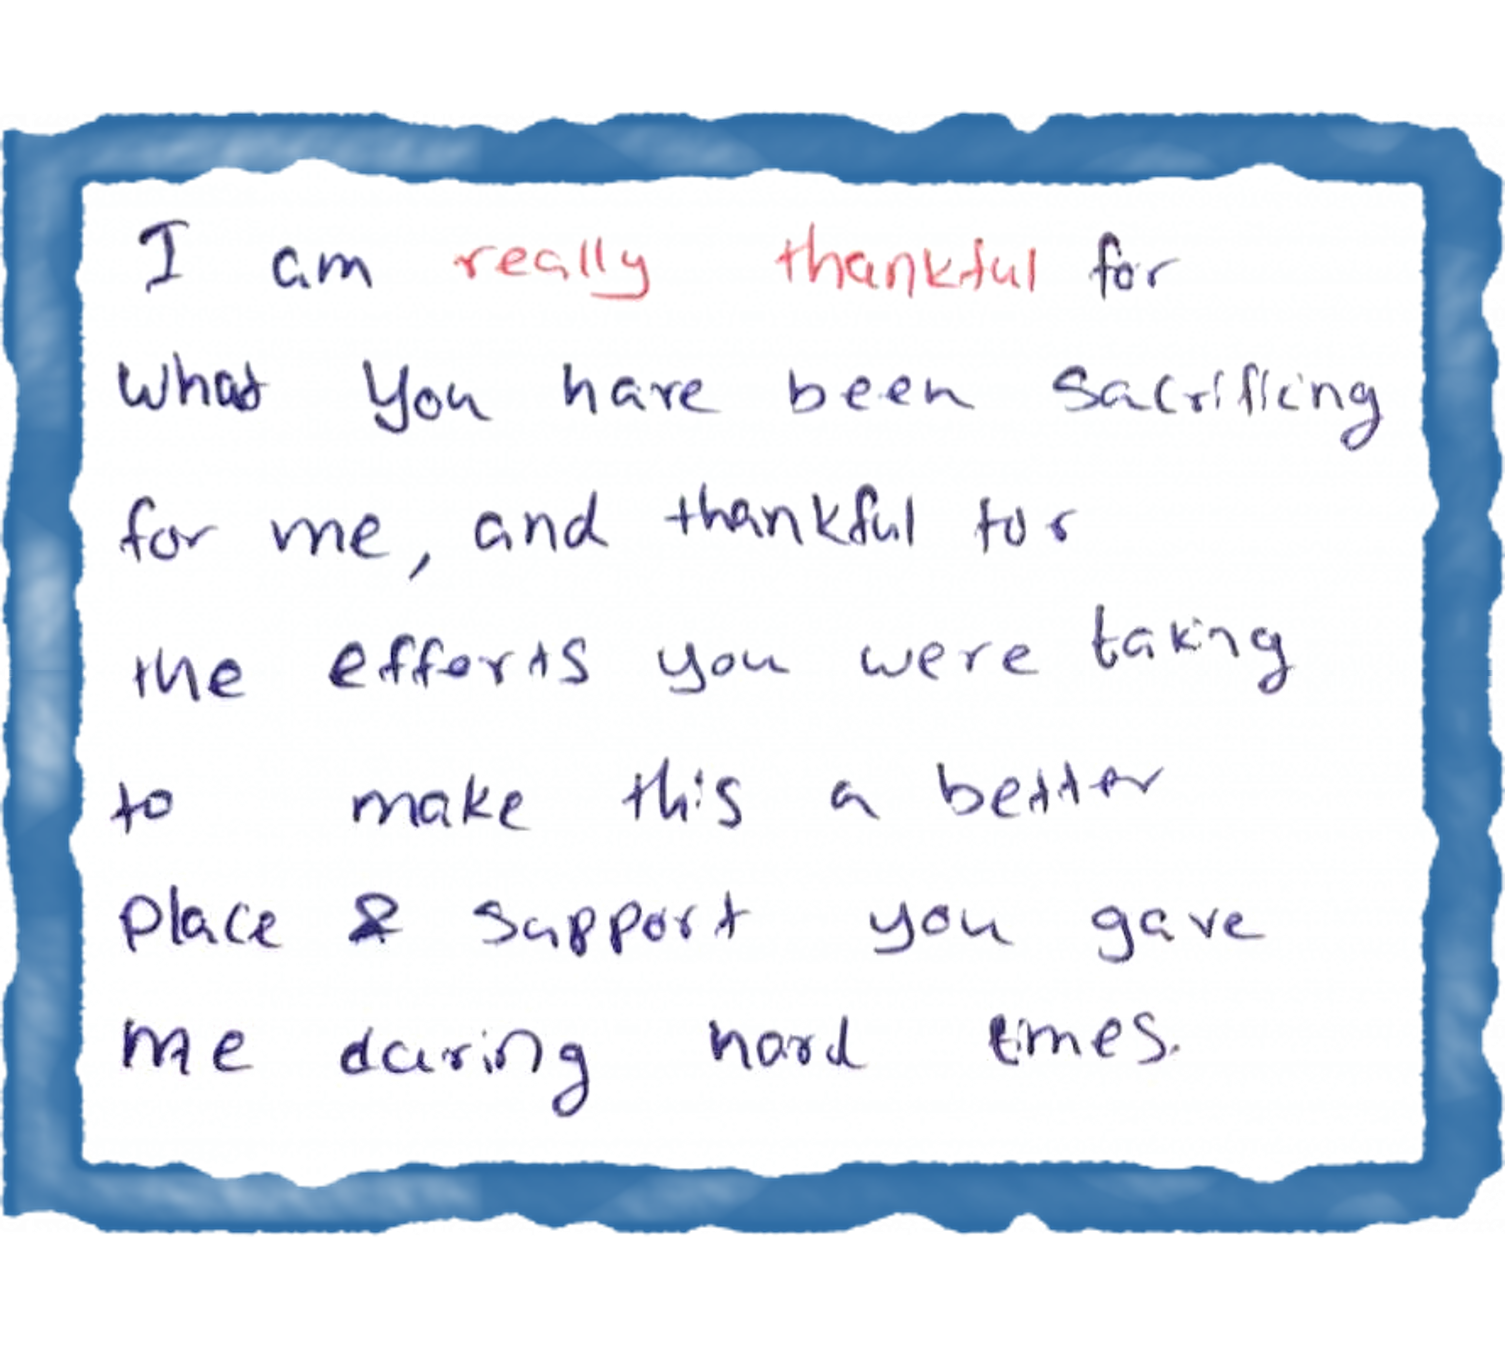 I am really thankful for
what you have been sacrificing
for me, and thankful for
the efforts you were taking
to make this a better
place & support you gave
me during hard times.